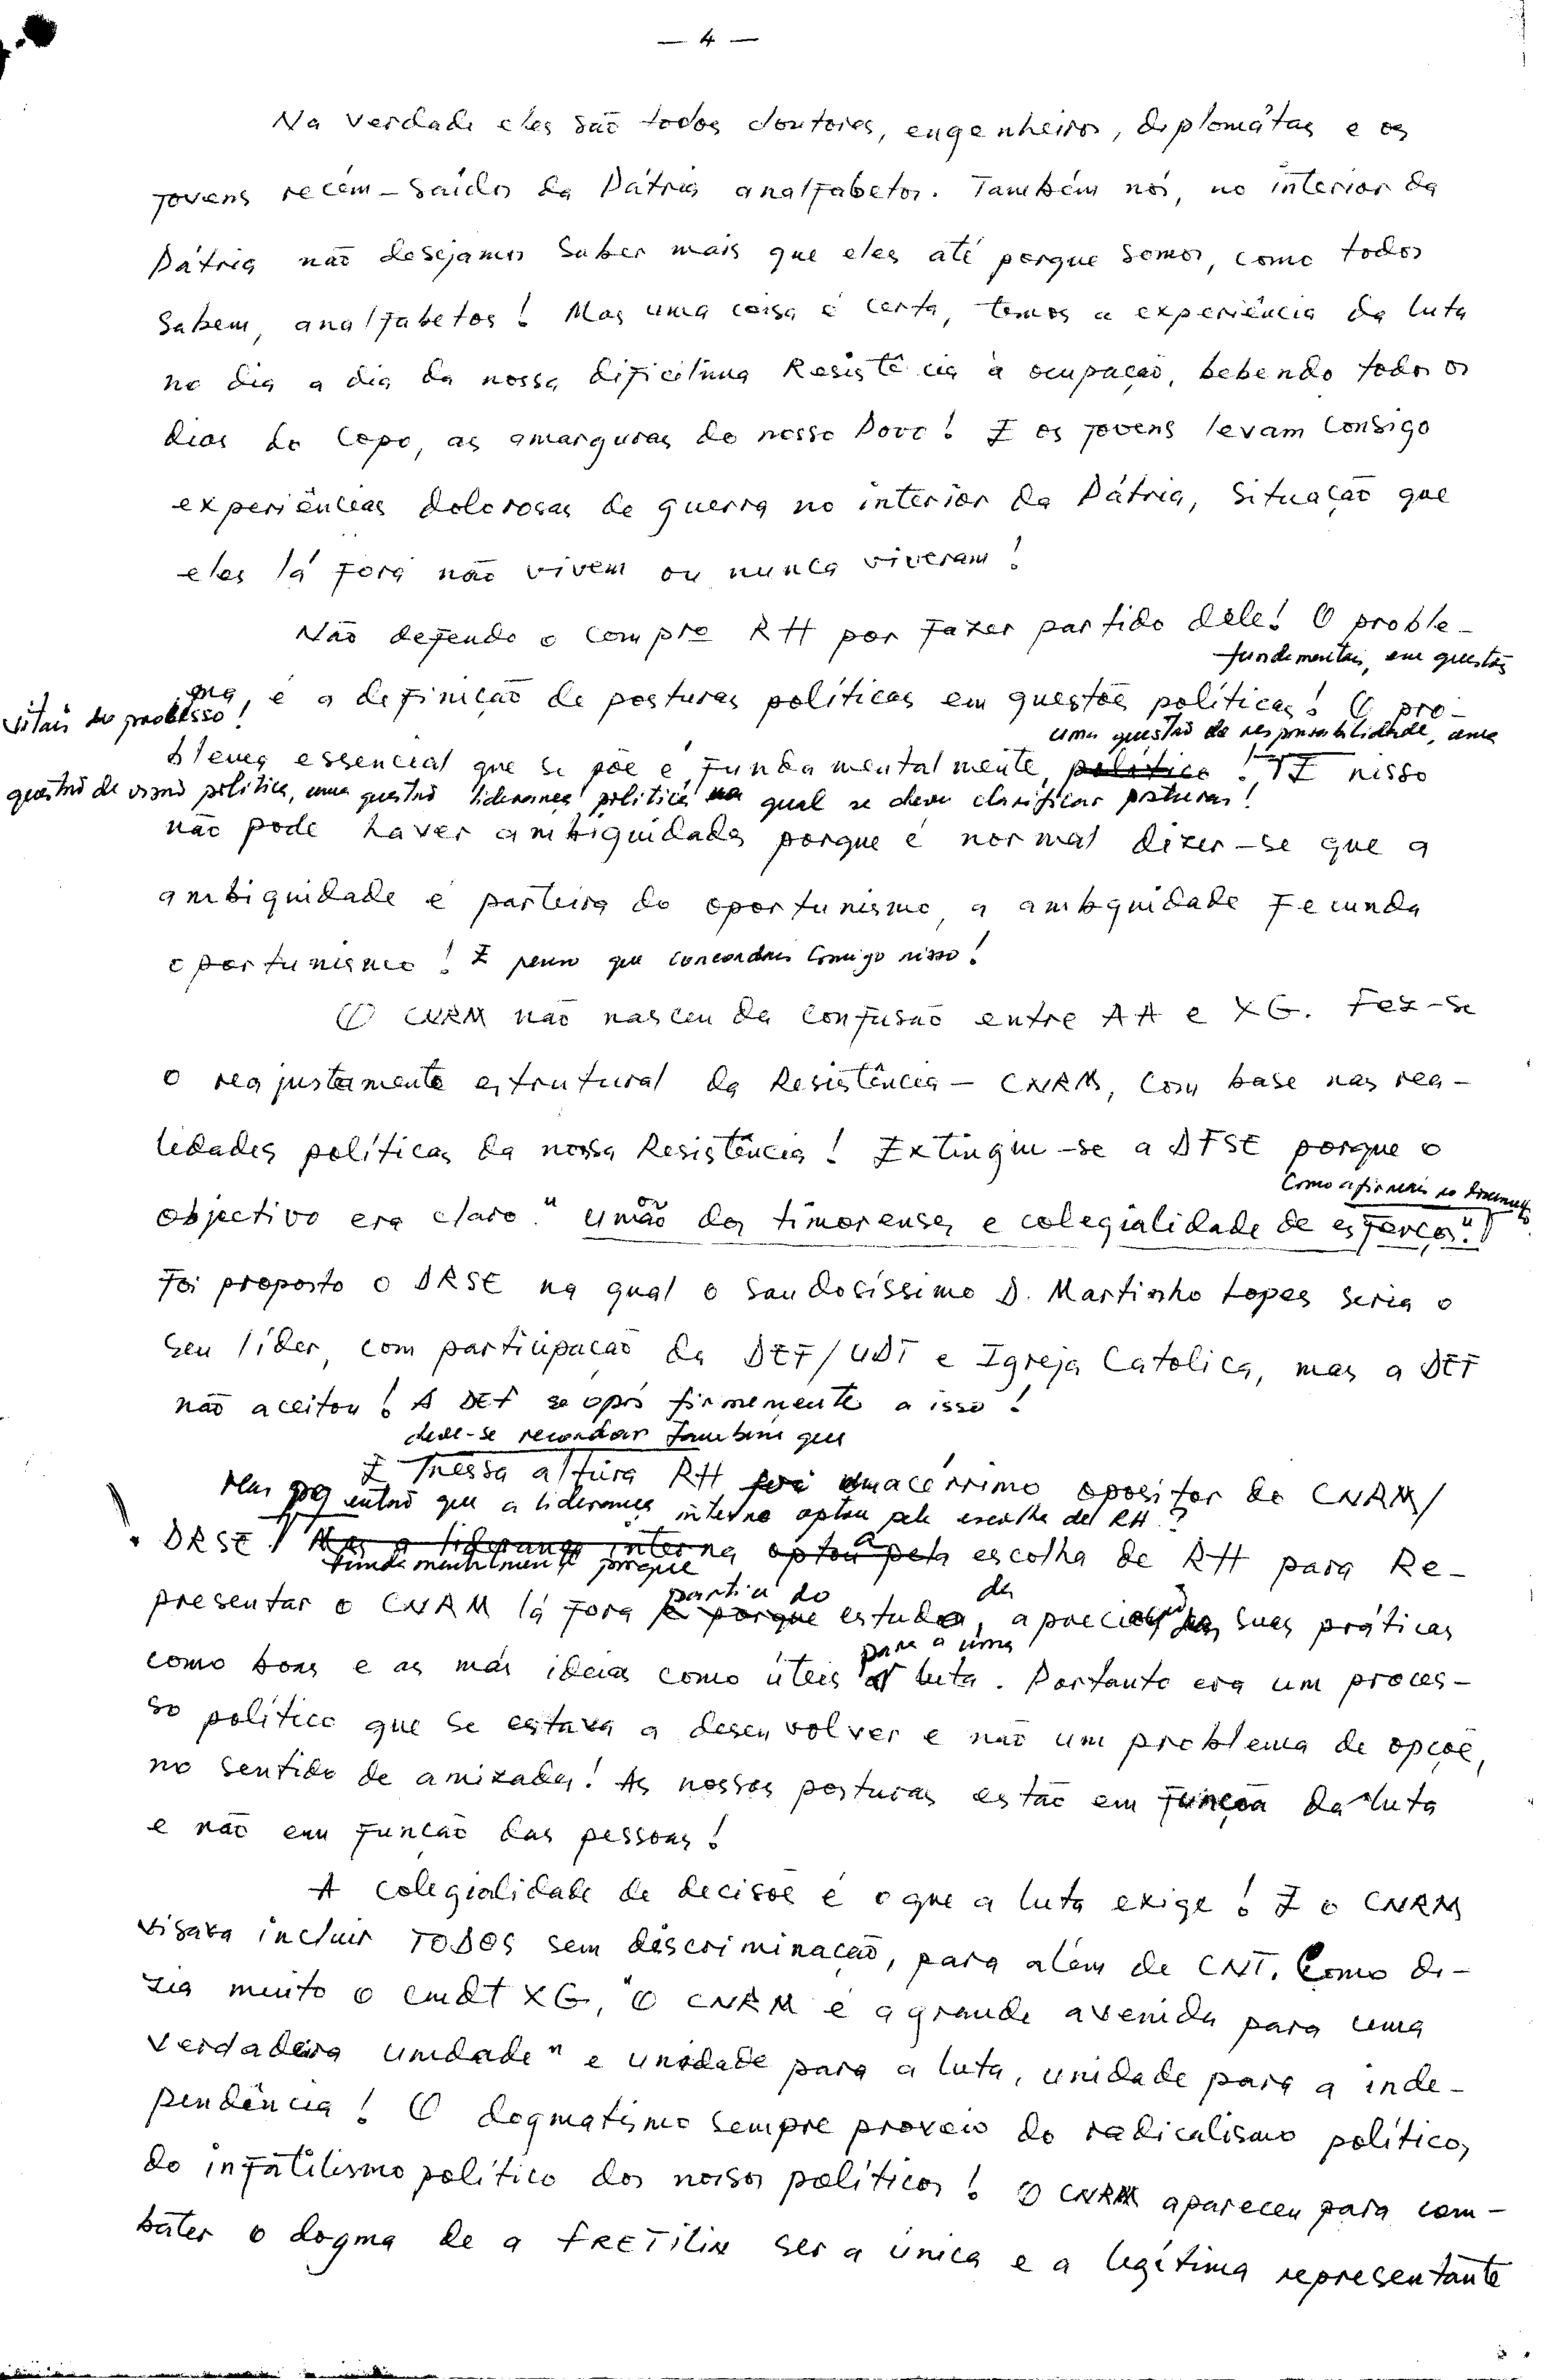 — 4 —
Na verdade eles são todos doutores, engenheiros, diplomátas e os
jovens recém-saídos da Pátria analfabetos. Também nós, no interior da
Pátria não desejamos saber mais que eles até porque somos, como todos
sabem, analfabetos! Mas uma coisa é certa, temos a experiência da luta
no dia a dia da nossa dificílima Resistência à ocupação, bebendo todos os
dias do copo, as amarguras do nosso Povo! E os jovens levam consigo
experiências dolorosas de guerra no interior da Pátria, situação que
eles lá fora não vivem ou nunca viveram!
Não defendo o compre RH por fazer partido dele! O proble-
fundamentais, em questões
ma, é a definição de posturas políticas em questões políticas! O pro-
vitais do processo!
uma questão de responsabilidade, uma
blema essencial que se põe é, fundamentalmente, político! E nisso
questão de visão política, uma questão liderança política na qual se deve clarificar posturas!
não pode haver ambiguidades porque é normal dizer-se que a
ambiguidade é parteira do oportunismo, a ambiguidade fecunda
oportunismo! E penso que concordais comigo nisso!
O CNRM não nasceu da confusão entre AA e XG. Fez-se
o reajustamento estrutural da Resistência — CNRM, com base nas rea-
lidades políticas da nossa Resistência! Extinguiu-se a DFSE porque o
como afirmais no documento
objectivo era claro "união dos timorenses e colegialidade de esforços"!
Foi proposto o DRSE na qual o saudosíssimo D. Martinho Lopes seria o
seu líder, com participação da DEF/UDT e Igreja Católica, mas a DEF
não aceitou! A DEF se opôs firmemente a isso!
deve-se recordar também que
E nessa altura RH foi um acérrimo opositor do CNRM/
Mas então que a liderança interna optou pela escolha de RH?
DRSE! Mas a liderança interna optou pela escolha de RH para Re-
fundamentalmente porque
presentar o CNRM lá fora é porque estudo, apreciação suas práticas
partiu do da
como boas e as más ideias como úteis luta. Portanto era um proces-
para a uma
so político que se estava a desenvolver e não um problema de opção,
no sentido de amizades! As nossas posturas estão em função da luta
e não em função das pessoas!
A colegialidade de decisões é o que a luta exige! E o CNRM
visava incluir TODOS sem discriminação, para além de CNT. Como di-
zia muito o cmdt XG, "O CNRM é a grande avenida para uma
verdadeira unidade" e unidade para a luta, unidade para a inde-
pendência! O dogmatismo sempre proveio do radicalismo político,
do infatilismo político dos nossos políticos! O CNRM apareceu para com-
bater o dogma de a FRETILIN ser a única e a legítima representante